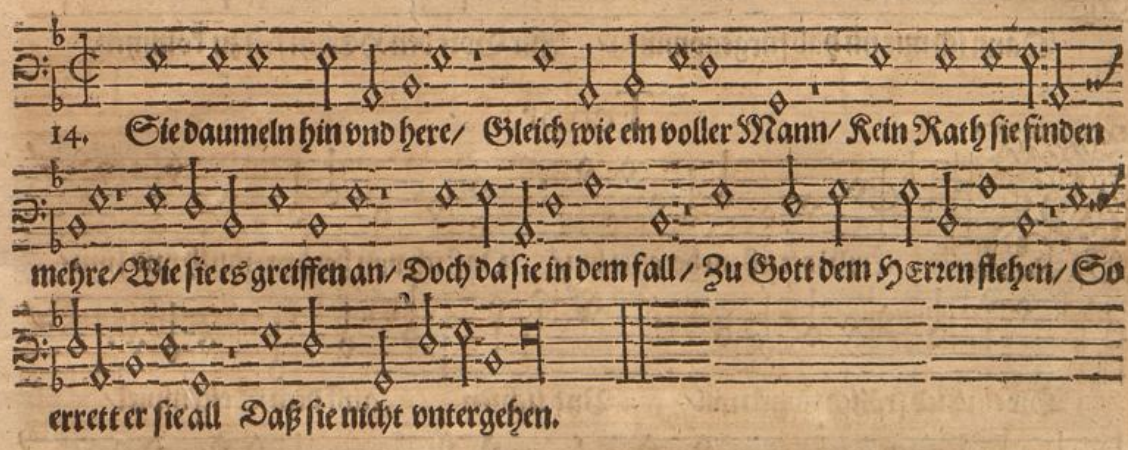 14. Sie daumeln hin vnd here/ Gleich wie ein voller Mann/ Kein Rath sie finden
mehre/ Wie sie es greiffen an/ Doch da sie in dem fall/ Zu Gott dem HErren flehen/ So
errett er sie all Daß sie nicht vntergehen.